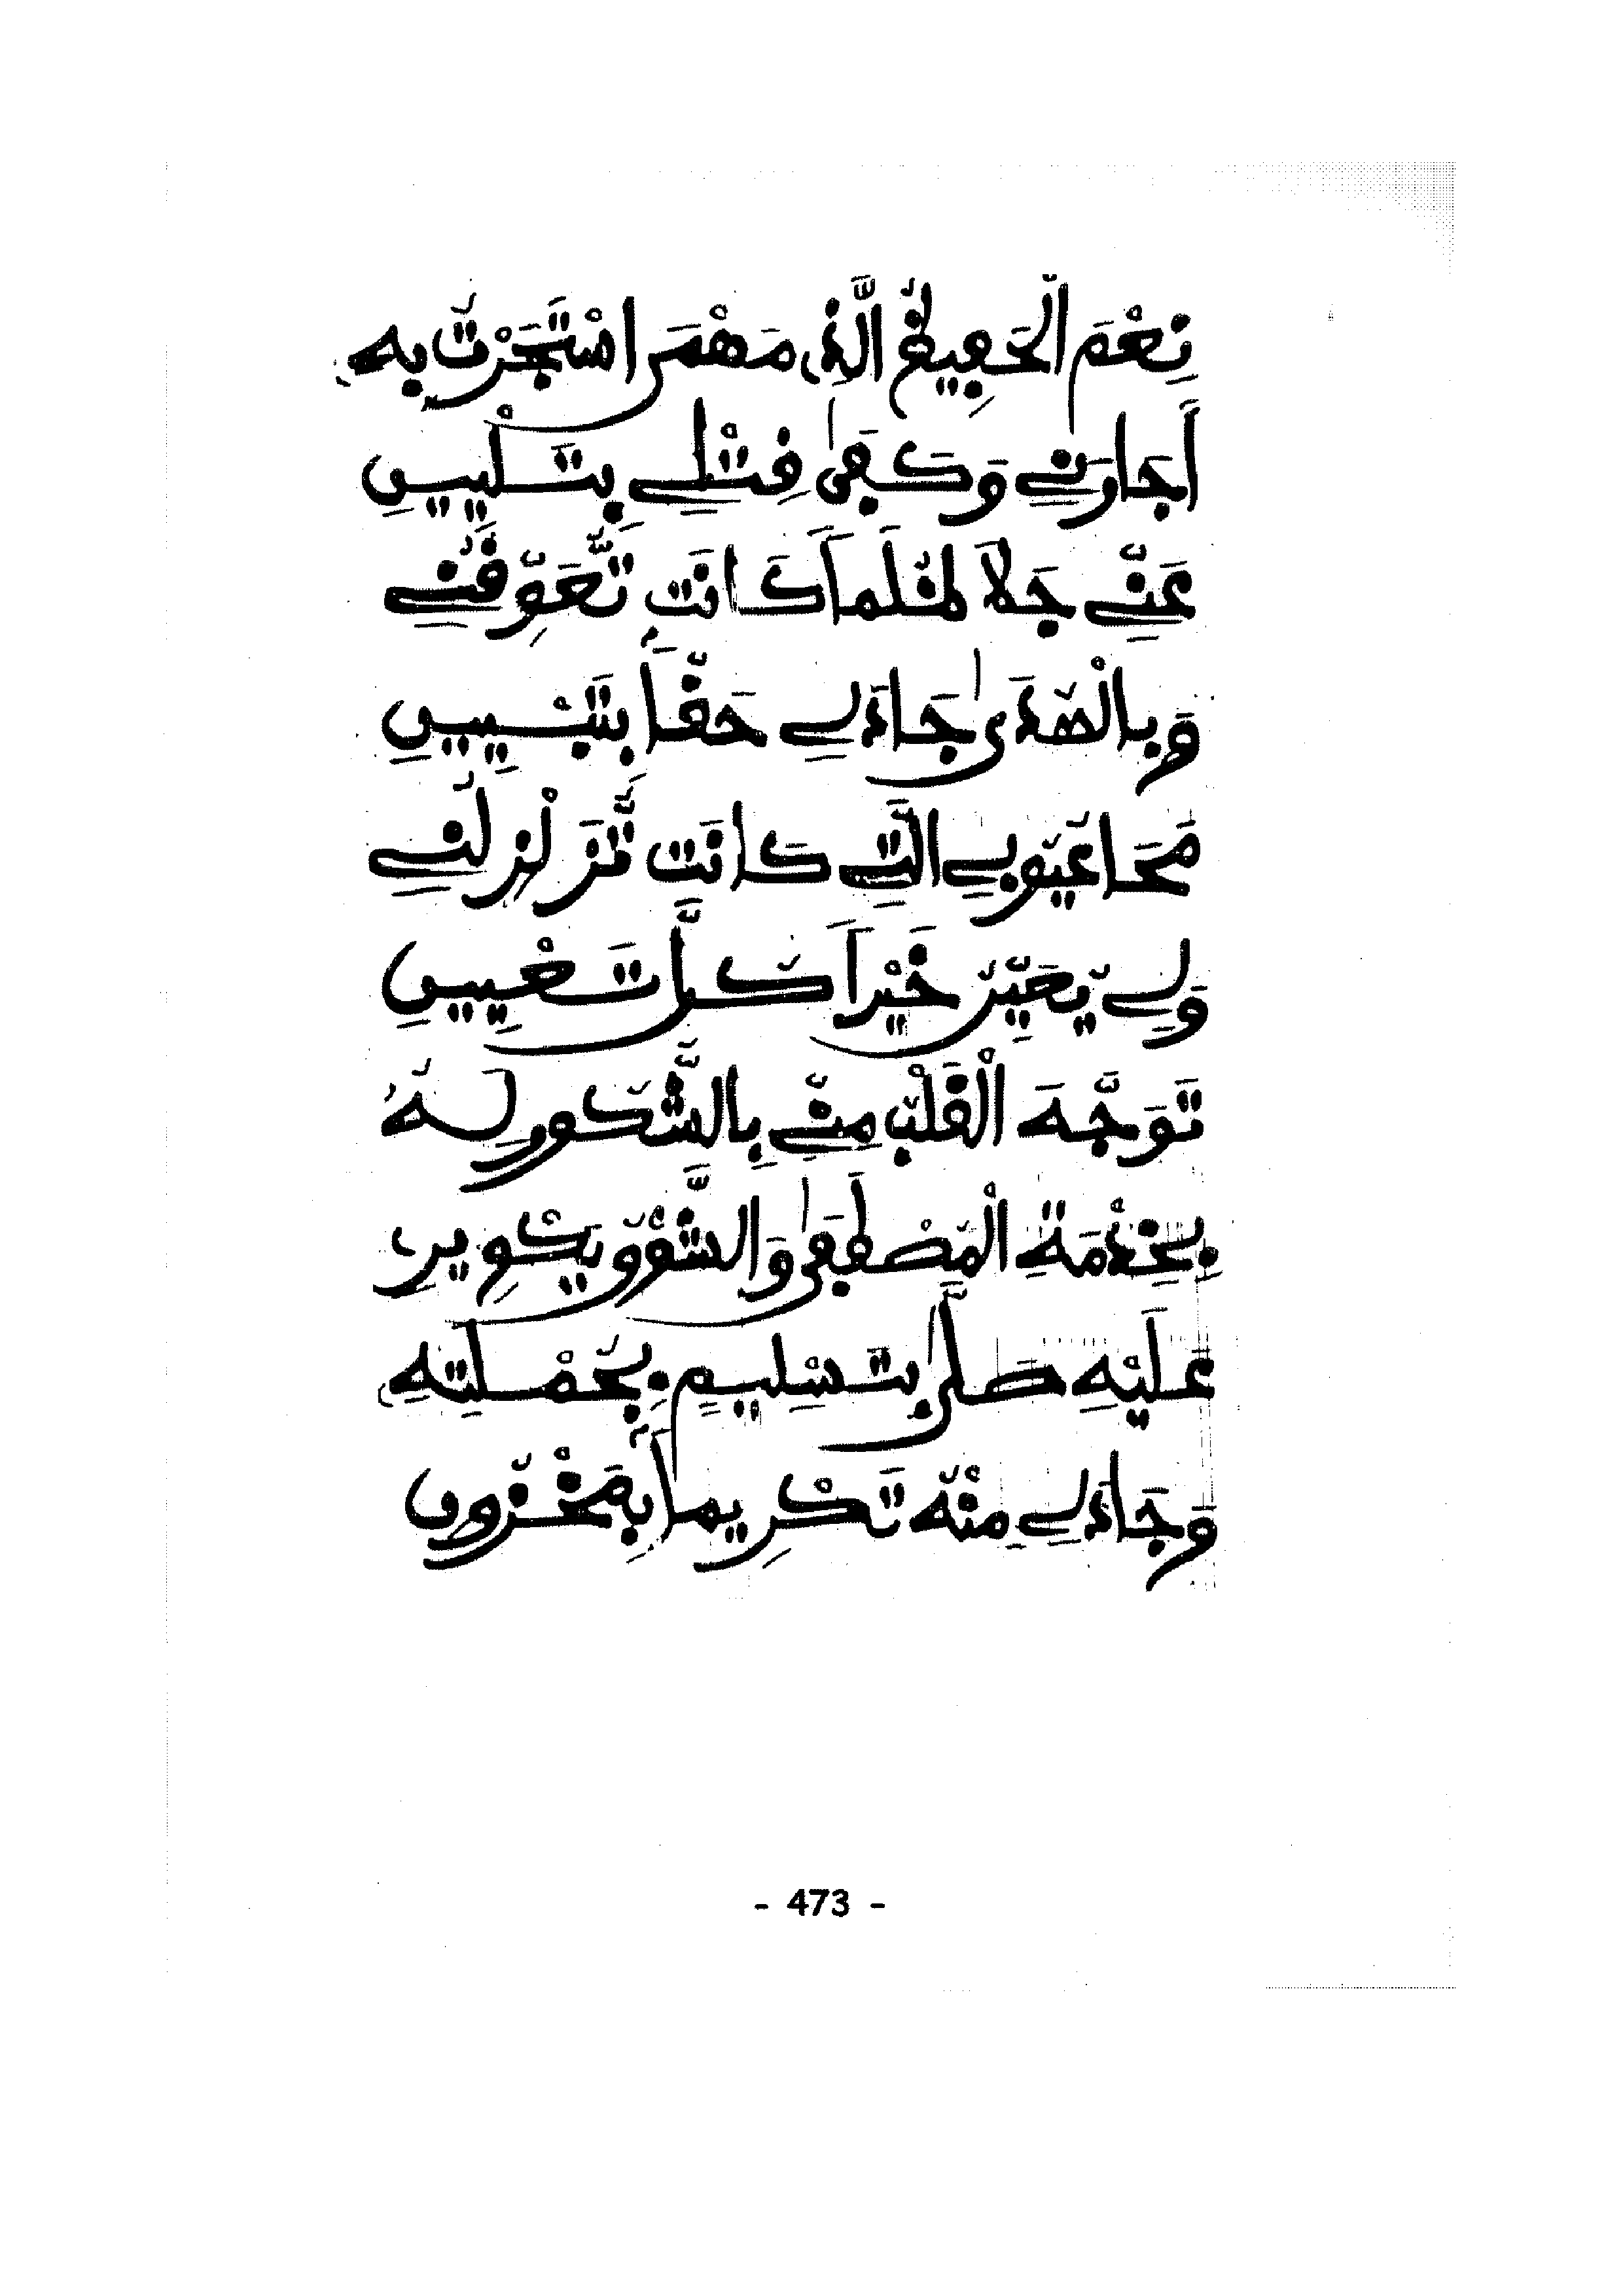 نِعْمَ الْحَفِيظُ الَّذِي مَهْمَى اسْتَجَرْتُ بِهِ
أَجَارَنِي وَكَفَى قَتْلِي بِتَلْيِينِ
عَنِّي جَلَا ظُلَماً كَانَتْ تُعَوِّقُنِي
وَبِالْهُدَى جَادَ لِي حَقّاً بِتَبْيِينِ
مَحَا عُيُوبِي الَّتِي كَانَتْ تُزَلْزِلُنِي
وَلِي يُعَيِّنُ خَيْراً كُلَّ تَعْيِينِ
تَوَجَّهَ الْقَلْبُ مِنِّي بِالشُّكُورِ لَهُ
بِخِدْمَةِ الْمُصْطَفَى وَالشَّوْقُ يَكْوِينِ
عَلَيْهِ صَلَّى بِتَسْلِيمٍ بِجُمْلَتِهِ
وَجَادَ لِي مِنْهُ تَكْرِيماً بِمَخْزُونِ
- 473 -